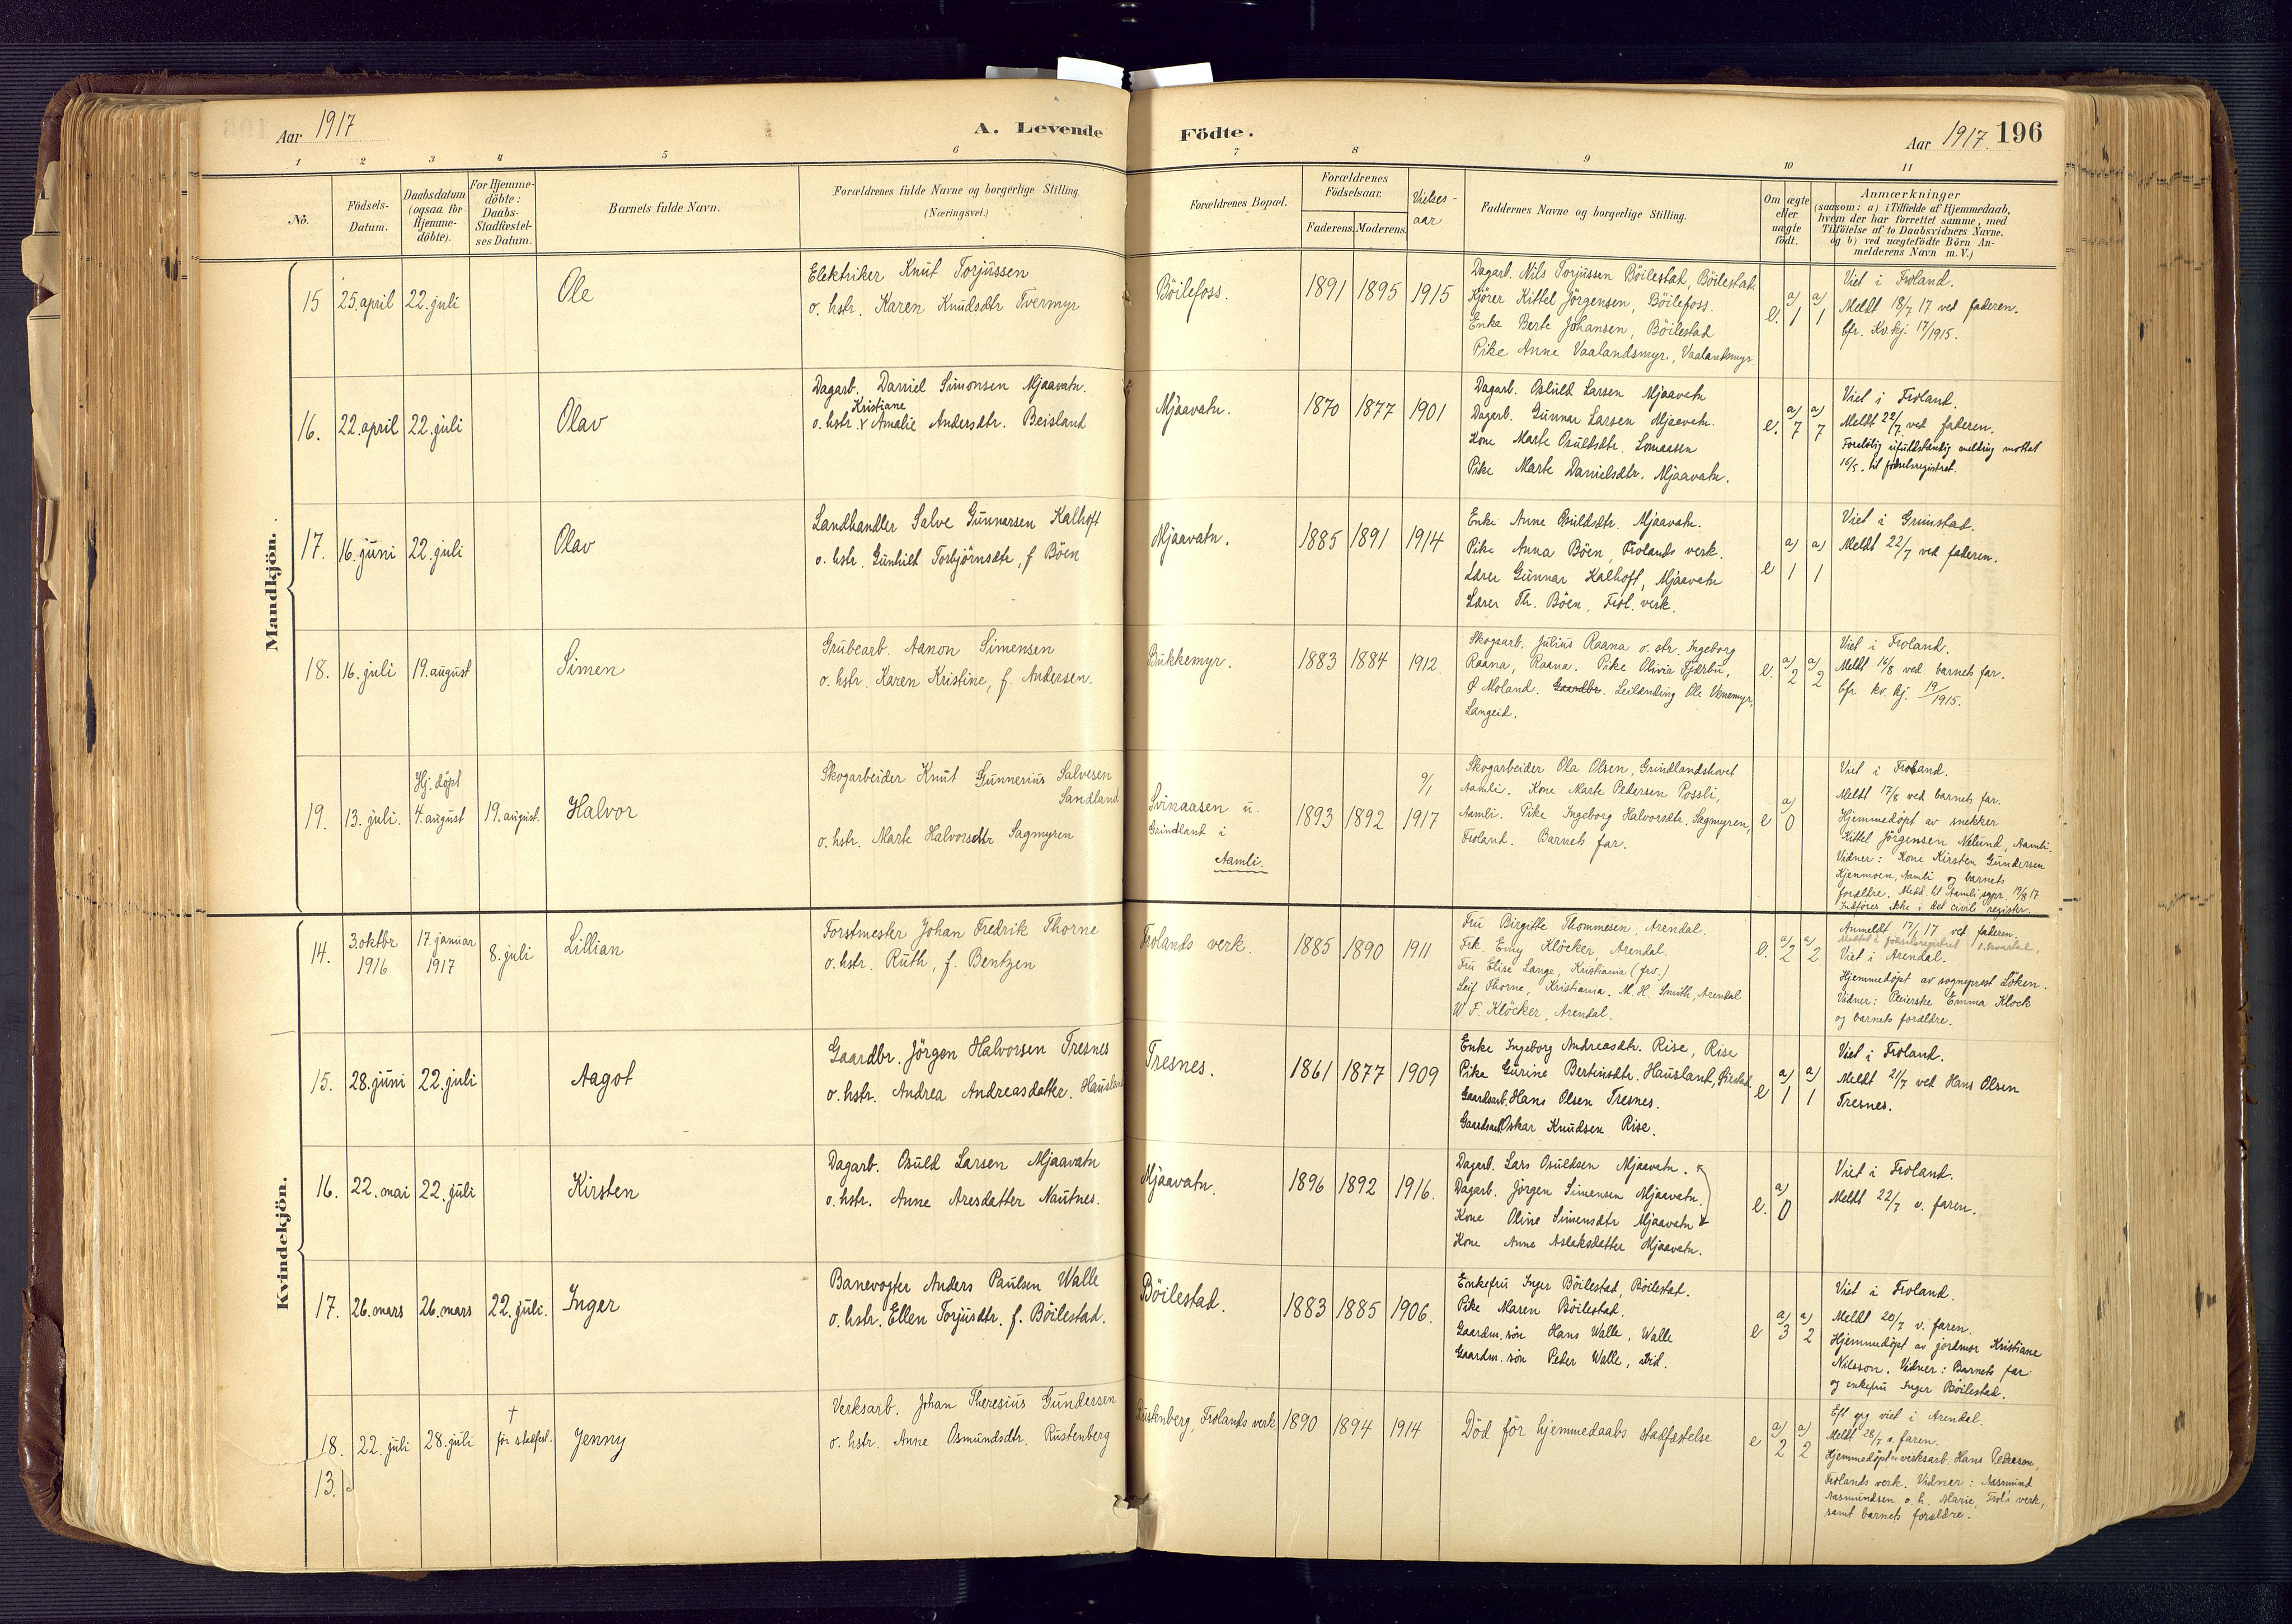 Aar 1917
A. Levende
Födte.
Aar 1917. 196
1 2 3 4 5 6 7 8 9 10 11
No.
Födsels-
Datum.
Daabsdatum
(ogsaa for
Hjemme-
döbte).
For Hjemme-
döbte:
Daabs-
Stadfæstel-
ses Datum.
Barnets fulde Navn.
Forældrenes fulde Navne og borgerlige Stilling
(Næringsvei.)
Forældrenes Bopæl.
Forældrenes
Födselsaar.
Faderens. Moderens.
Vielses-
aar
Faddernes Navne og borgerlige Stilling.
Om ægte
eller
uægte
født.
Anmærkninger
(saasom: a) i Tilfælde af Hjemmedaab,
hvem der har forrettet samme, med
Tilföielse af to Daabsvidners Navne.
og b) ved uægtefödte Börn An-
melderens Navn m. V.)
Mandkjön.
15 25. april 22. juli Ole
Elektriker Knut Torjussen
o. hstr. Karen Knudsdtr Tvermyr
Böilefoss. 1891 1895 1915
Dagarb. Nils Torjussen Böilestad, Böilestad.
Kjörer Kittel Jörgensen, Böilefoss.
Enke Berte Johansen, Böilestad
Pike Anne Vaalandsmyr, Vaalandsmyr
e. a) 1 a) 1
Viet i Froland.
Meldt 18/7 17 ved faderen.
Cfr. Kv. kj. 17/1915.
16. 22. april 22. juli Olav
Dagarb. Daniel Simonsen Mjaavatn.
Kristiane
o. hstr. v Amalie Andersdtr. Beisland
Mjaavatn. 1870 1877 1901
Dagarb. Osuld Larsen Mjaavatn
Dagarb. Gunnar Larsen Mjaavatn.
Kone Marte Osuldsdtr. Lomaasen
Pike Marte Danielsdtr. Mjaavatn.
e. a) 7 a) 7
Viet i Froland.
Meldt 22/7 ved faderen.
Foreløbig ufuldstændig melding mottat
16/5. til fødselsregistret.
17. 16. juni 22. juli Olav
Landhandler Salve Gunnarsen Kalhoft
o. hstr. Gunhild Torbjörnsdtr, f Böen
Mjaavatn. 1885 1891 1914
Enke Anne Osuldsdtr. Mjaavatn.
Pike Anna Böen, Frolands verk.
Lærer Gunnar Kalhoft, Mjaavatn
Lærer Th. Böen, Frol. verk.
e a) 1 a) 1
Viet i Grimstad.
Meldt 22/7 ved faderen.
18. 16. juli 19. august Simen
Grubearb. Aanon Simensen
o. hstr. Karen Kristine, f. Andersen.
Bukkemyr. 1883 1884 1912
Skogsarb. Julius Raana o. str. Ingeborg
Raana, Raana. Pike Olivia Fjærbu,
Ø Moland. Gaardbr. Leilænding Ole Venemyr,
Langeid.
e. a) 2 a) 2
Viet i Froland.
Meldt 16/8 ved barnets far.
Cfr kv. kj. 19/1915.
19. 13. juli. Hj. döpt
4. august 19. august. Halvor
Skogarbeider Knut Gunnerius Salvesen
Sandland
o. hstr. Marte Halvorsdtr Sagmyren
Svinaasen u.
Grindland i
Aamli.
1893 1892 9/1 1917
Skogarbeider Ola Olsen, Grindlandshovet
Aamli. Kone Marte Pedersen Possli,
Aamli. Pike Ingeborg Halvorsdtr. Sagmyren,
Froland. Barnets far.
e a) 0
Viet i Froland.
Meldt 17/8 ved barnets far.
Hjemmedöpt av snekker
Kittel Jörgensen Nelund, Aamli.
Vidner: Kone Kirsten Gundersen
Kjenmoen, Aamli og barnets
forældre. Medd. til Aamli sgpr. 19/8 17
Indføres ikke i det civile register.
Kvindekjön.
14. 3. oktbr
1916
17. januar
1917
8. juli Lillian
Forstmester Johan Fredrik Thorne
o. hstr. Ruth, f. Bentzen
Frolands verk. 1885 1890 1911
Fru Birgitte Thommesen, Arendal.
Frk. Emy Klöcker, Arendal.
Fru Elise Lange, Kristiania (frv.)
Leif Thorne, Kristiania. M. H. Smith, Arendal
W F. Klöcker, Arendal.
e. a) 2 a) 2
Anmeldt 17/1 17 ved faderen.
Viet i Arendal.
Hjemmedöpt av sogneprest Löken.
Vidner: Pleierske Emma Klock
og barnets forældre.
15. 28. juni 22. juli Aagot
Gaardbr. Jörgen Halvorsen Tresnes
o. hstr. Andrea Andreasdatter. Hausland
Tresnes. 1861 1877 1909
Enke Ingeborg Andreasdtr. Rise, Rise
Pike Gurine Bertinsdtr. Hausland,
Gaardsarb. Hans Olsen Tresnes.
Gaardsarb. Oskar Knudsen Rise.
e a) 1 a) 1
Viet i Froland.
Meldt 21/7 ved Hans Olsen
Tresnes.
16. 22. mai 22. juli Kirsten
Dagarb. Osuld Larsen Mjaavatn
o. hstr. Anne Aresdatter Nautnes.
Mjaavatn. 1896 1892 1916.
Dagarb. Lars Osuldsen Mjaavatn.
Dagarb. Jörgen Simensen Mjaavatn.
Kone Oline Simensdtr Mjaavatn
Kone Anne Aslaksdatter Mjaavatn.
e. a) 0
Viet i Froland.
Meldt 22/7 v. faren.
17. 26. mars 26. mars 22. juli. Inger
Banevogter Anders Paulsen Walle
o. hstr. Ellen Torjusdtr. f. Böilestad.
Böilestad. 1883 1885 1906.
Enkefru Inger Böilestad, Böilestad.
Pike Maren Böilestad.
Gaardm. søn Hans Walle, Walle
Gaardm. søn Peder Walle, ibid.
e a) 3 a) 2
Viet i Froland.
Meldt 20/7 v. faren.
Hjemmedöpt av jordmor Kristiane
Nilsson. Vidner: Barnets far
og enkefru Inger Böilestad.
18. 22. juli 28. juli †
för stadfest. Jenny
Verksarb. Johan Theresius Gundersen
o. hstr. Anne Osmundsdtr. Rustenberg
Rustenberg, Frolands verk. 1890 1894 1914
Död för hjemmedaabs stadfæstelse
e a) 2 a) 2
Eft. gg viet i Arendal.
Meldt 28/7 v. faren.
Hjemmedöpt av verksarb. Hans Pedersen,
Frolands verk. Vidner: Aasmund
Aasmundsen o. h. Marie, Frol's verk,
samt barnets forældre.
13.